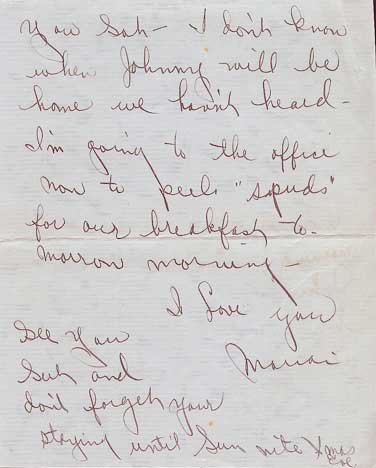 you Sat - I don't know
when Johnny will be
home we havn't heard -
I'm going to the office
now to peel "spuds"
for our breakfast to-
morrow morning -
I love you
See you
Sat and
don't forget your
staying until Sun nite Xmas
Eve